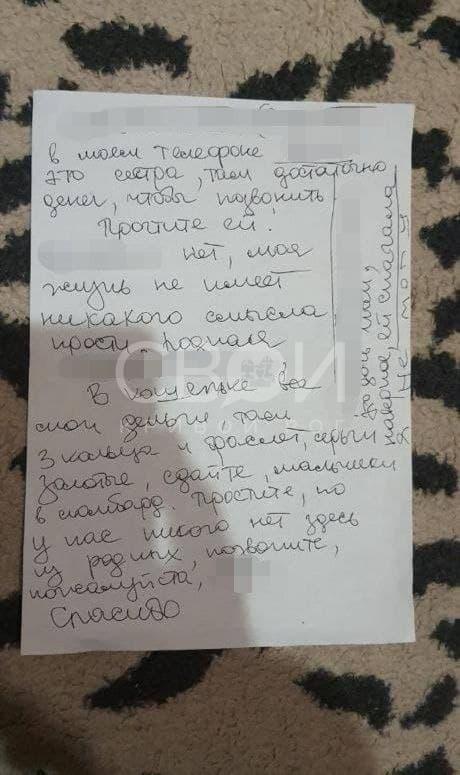 в моем телефоне
это сестра, там достаточно
денег, чтобы позвонить
Простите ей.
нет, моя
жизнь не имеет
никакого смысла
прости, родная
В кошельке все
мои деньги там
3 кольца и браслет, серьги
золотые, сдайте,
в ломбард. Простите, но
у нас никого нет здесь
из родных, позвоните,
пожалуйста,
Спасибо
наверное, ей сначала
не могу
СВОИ
КРИВОЙ РОГ